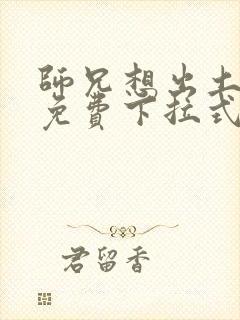 師兄想出土
免費下拉式
君留香